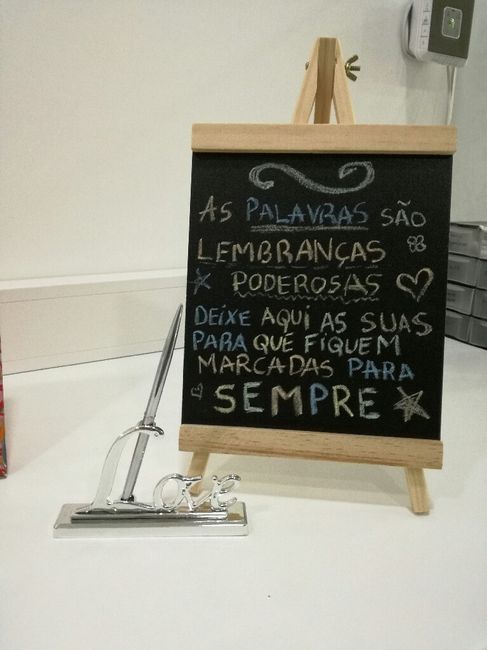 AS PALAVRAS SÃO
LEMBRANÇAS
PODEROSAS
DEIXE AQUI AS SUAS
PARA QUE FIQUEM
MARCADAS PARA
SEMPRE
Love